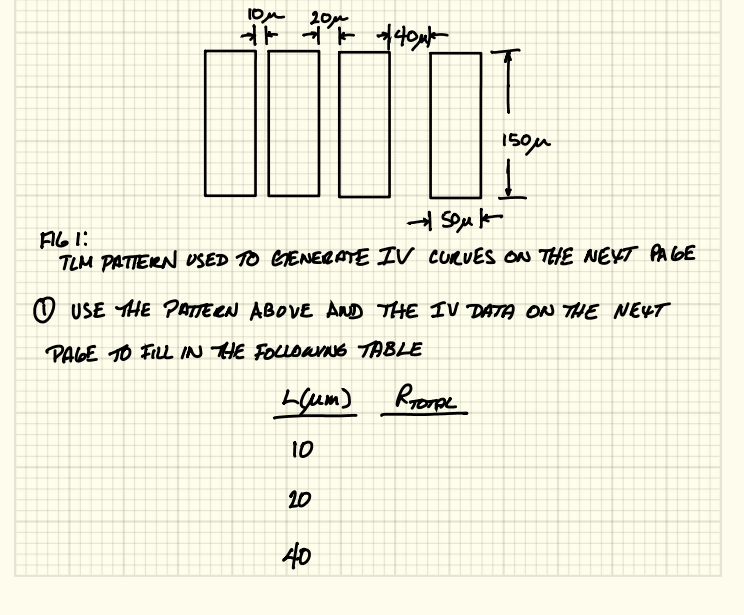 10μ 20μ 40μ
150μ
50μ
FIG 1:
TLM PATTERN USED TO GENERATE IV CURVES ON THE NEXT PAGE
① USE THE PATTERN ABOVE AND THE IV DATA ON THE NEXT
PAGE TO FILL IN THE FOLLOWING TABLE
L(μm) RTOTAL
10
20
40